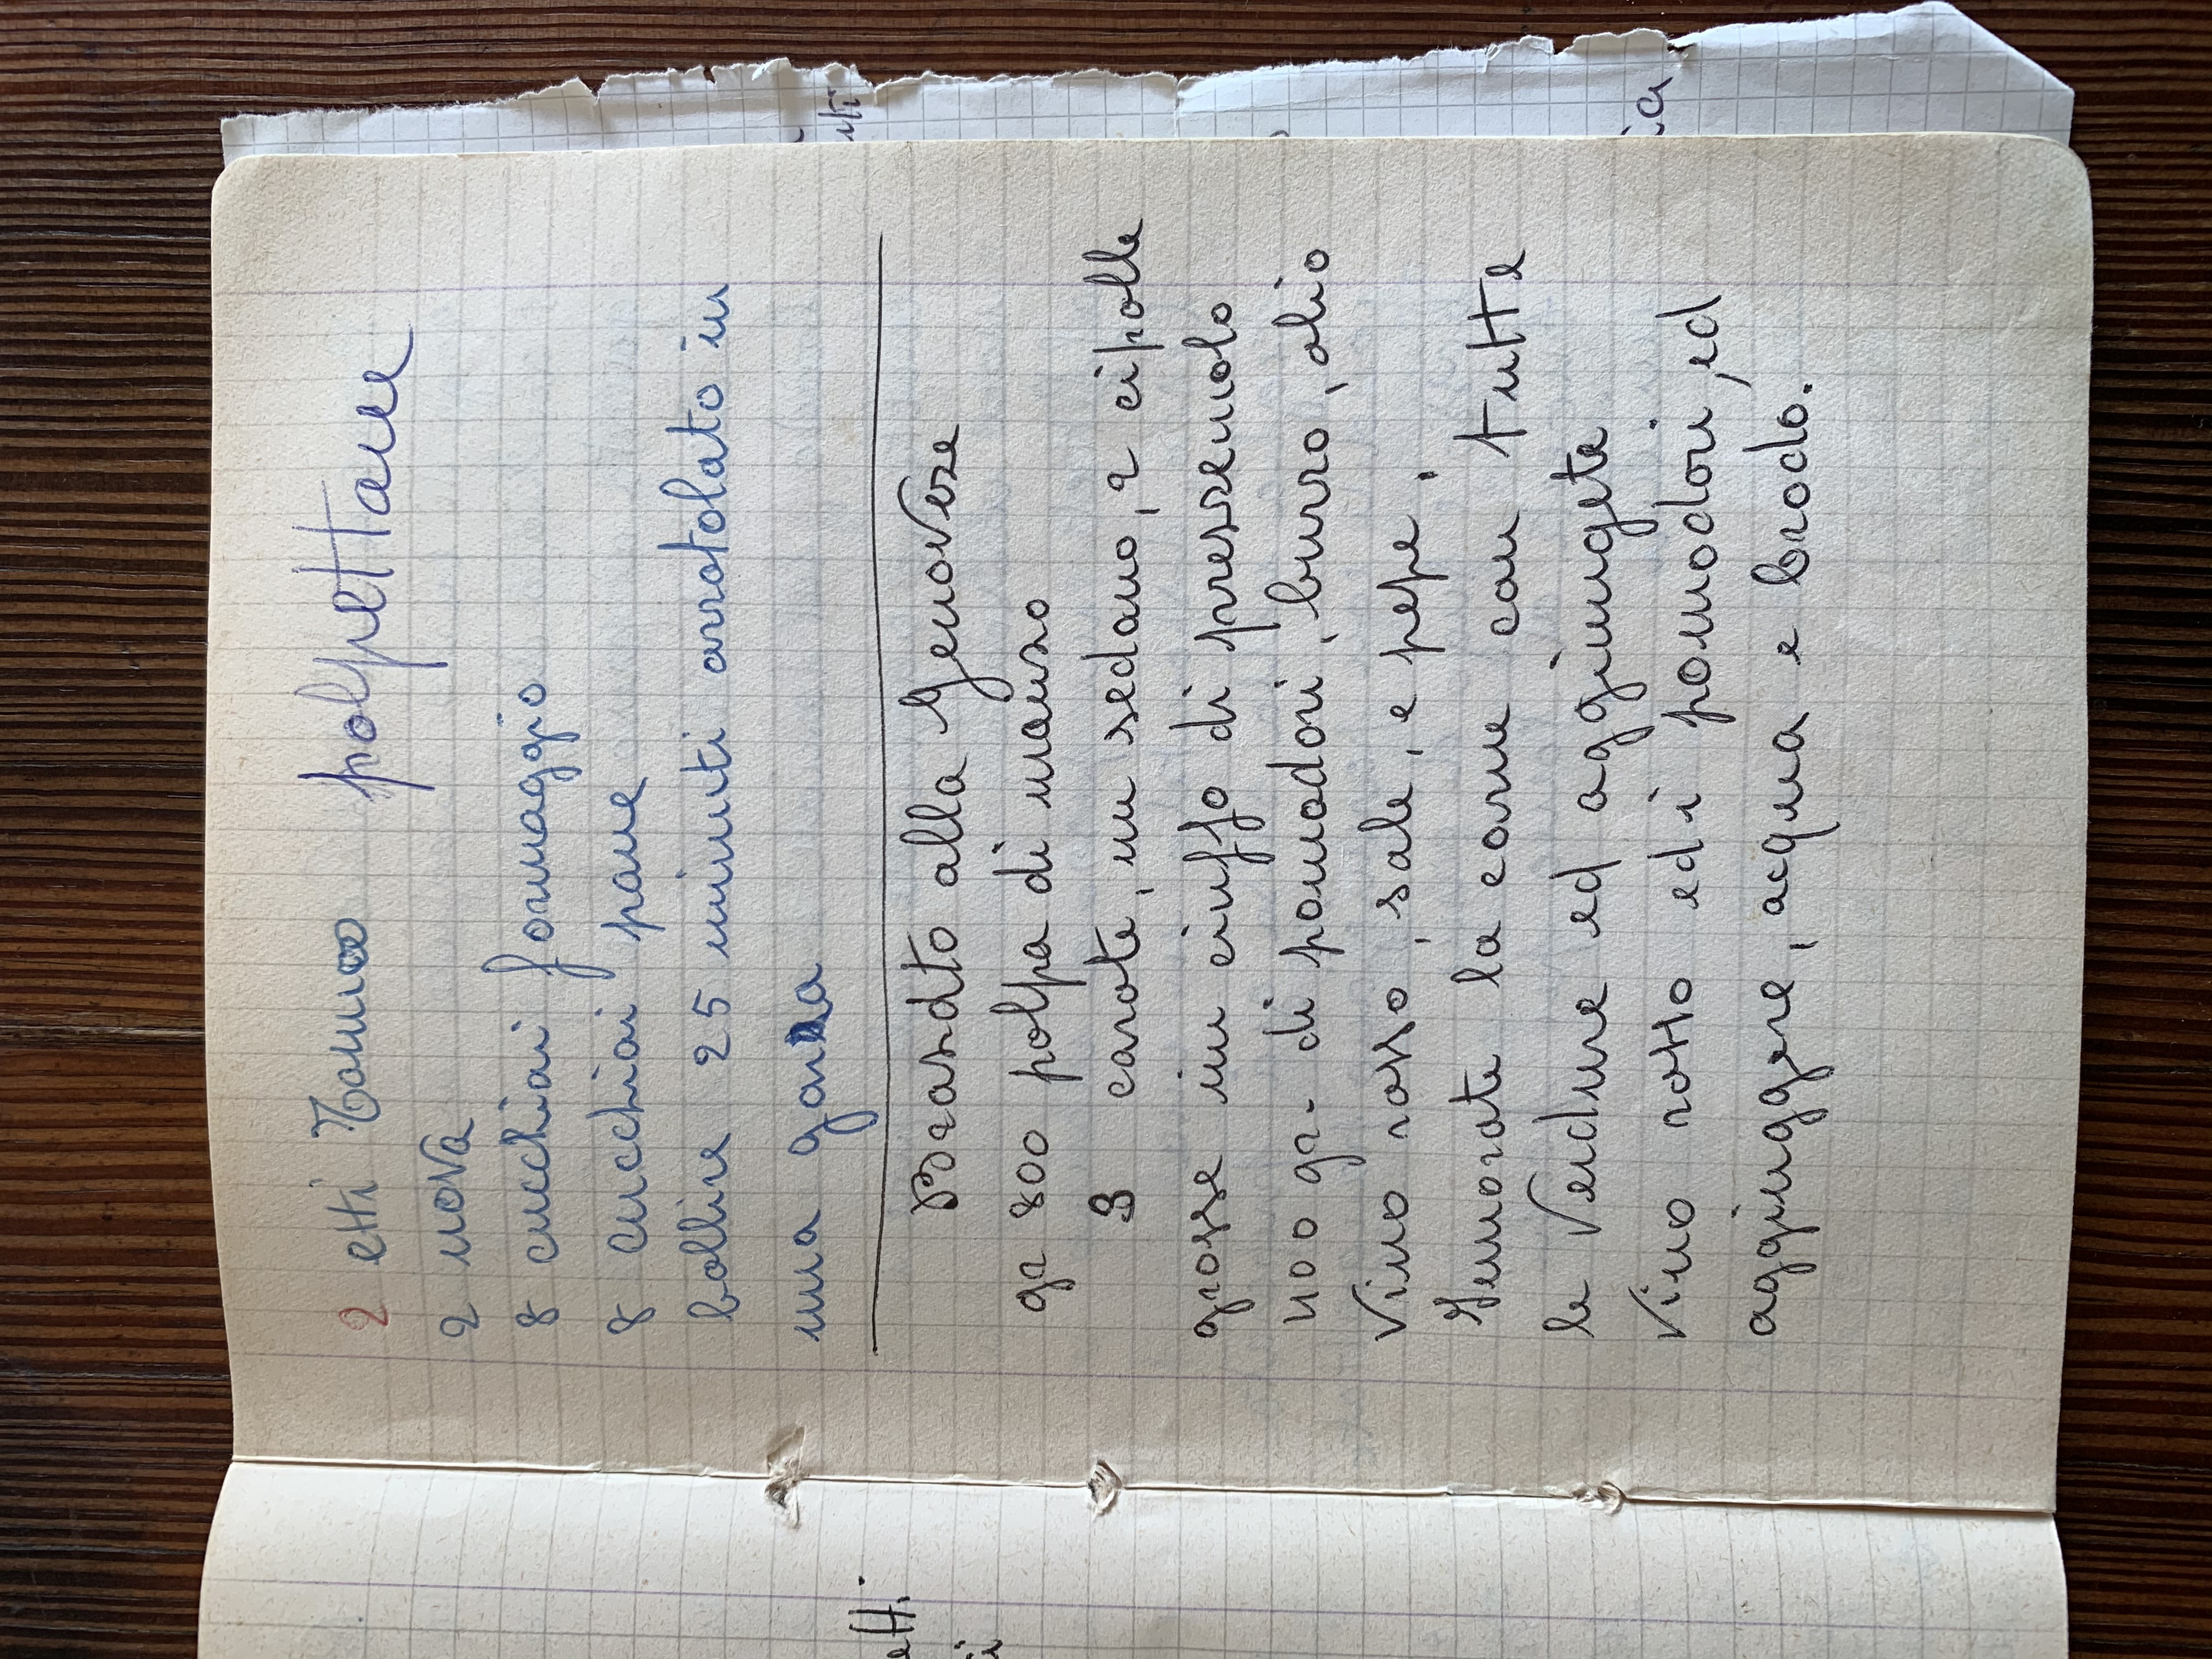 2 etti Tonno polpettone
2 uova
8 cucchiai formaggio
8 cucchiai pane
bollire 25 minuti arrotolato in
una garza
Brasato alla Genovese
gr 800 polpa di manzo
3 carote, un sedano, 2 cipolle
grosse un ciuffo di prezzemolo
400 gr. di pomodori, burro, olio
vino rosso, sale, e pepe.
la carne con tutte
le verdure ed aggiungete
vino rosso ed i pomodori, ed
aggiuggere, acqua e brodo.
etti